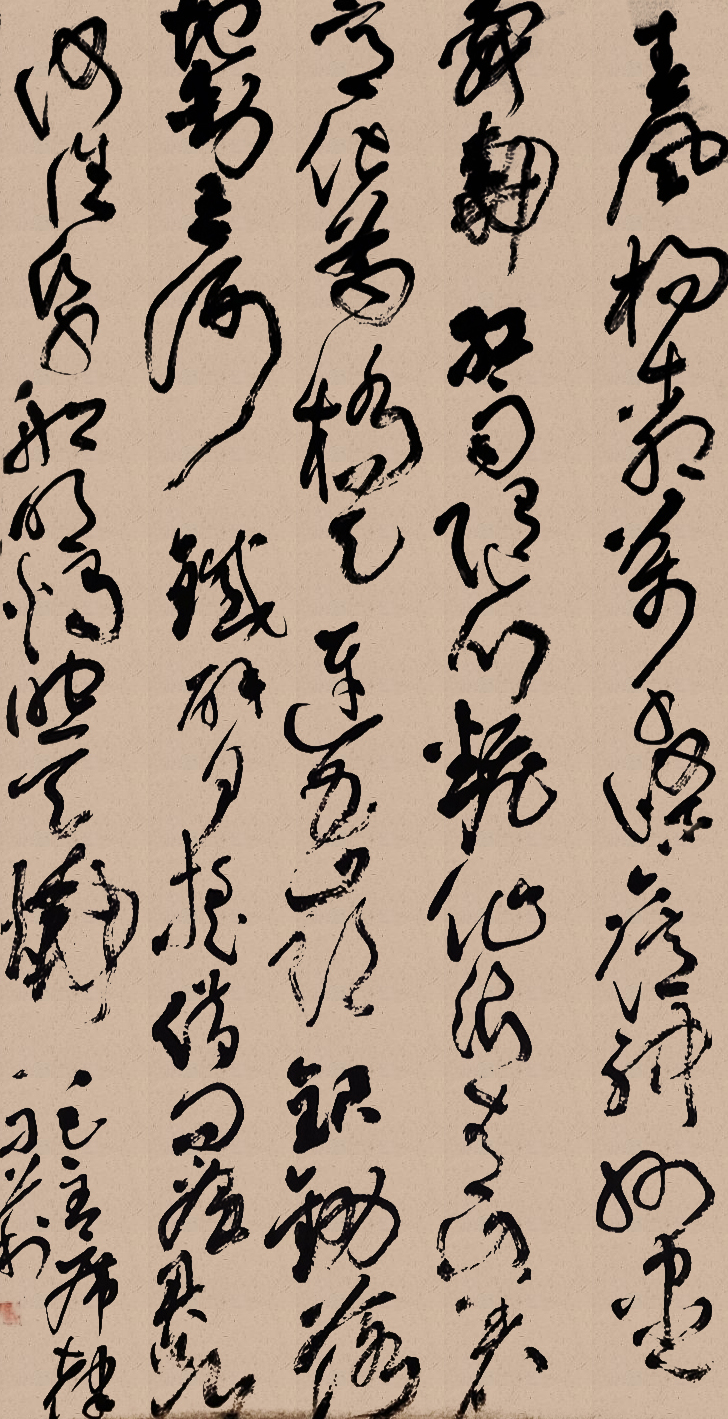 春風楊柳萬千條六億神州盡
舜堯紅雨隨心翻作浪青山著
意化為橋天連五嶺銀鋤落
地動三河鐵臂搖借問瘟君欲
何往紙船明燭照天燒
毛主席律